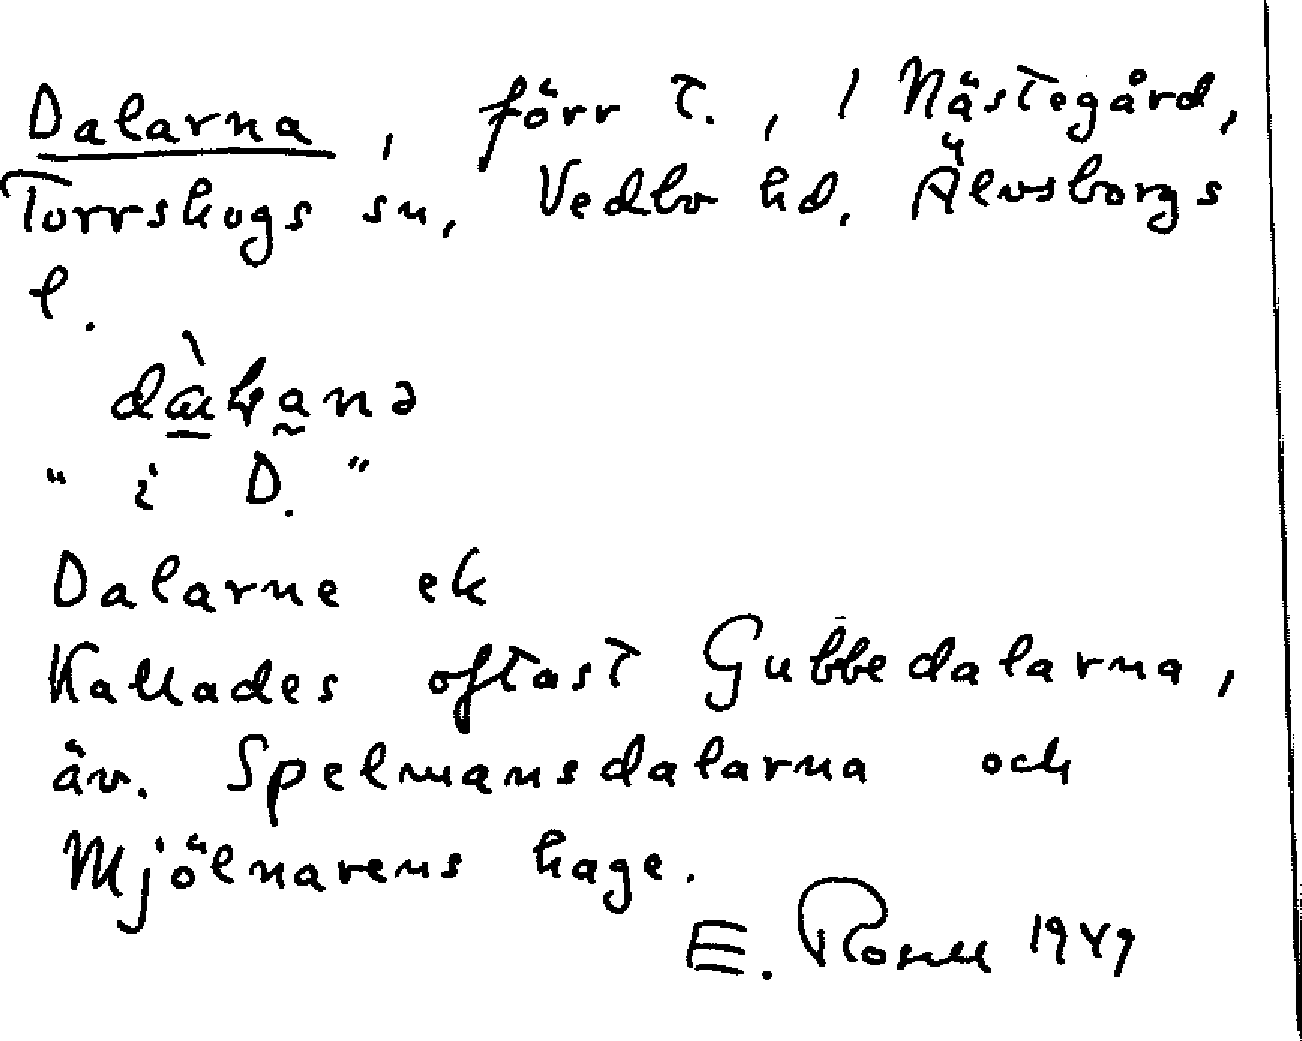 Dalarna, förr t., 1 Nästegård,
Torrskogs sn, Vedbo hd. Älvsborgs
l.
" i D. "
Dalarne ek
Kallades oftast Gubbedalarna,
äv. Spelmansdalarna och
Mjölnarens hage.
E. Rosell 1949